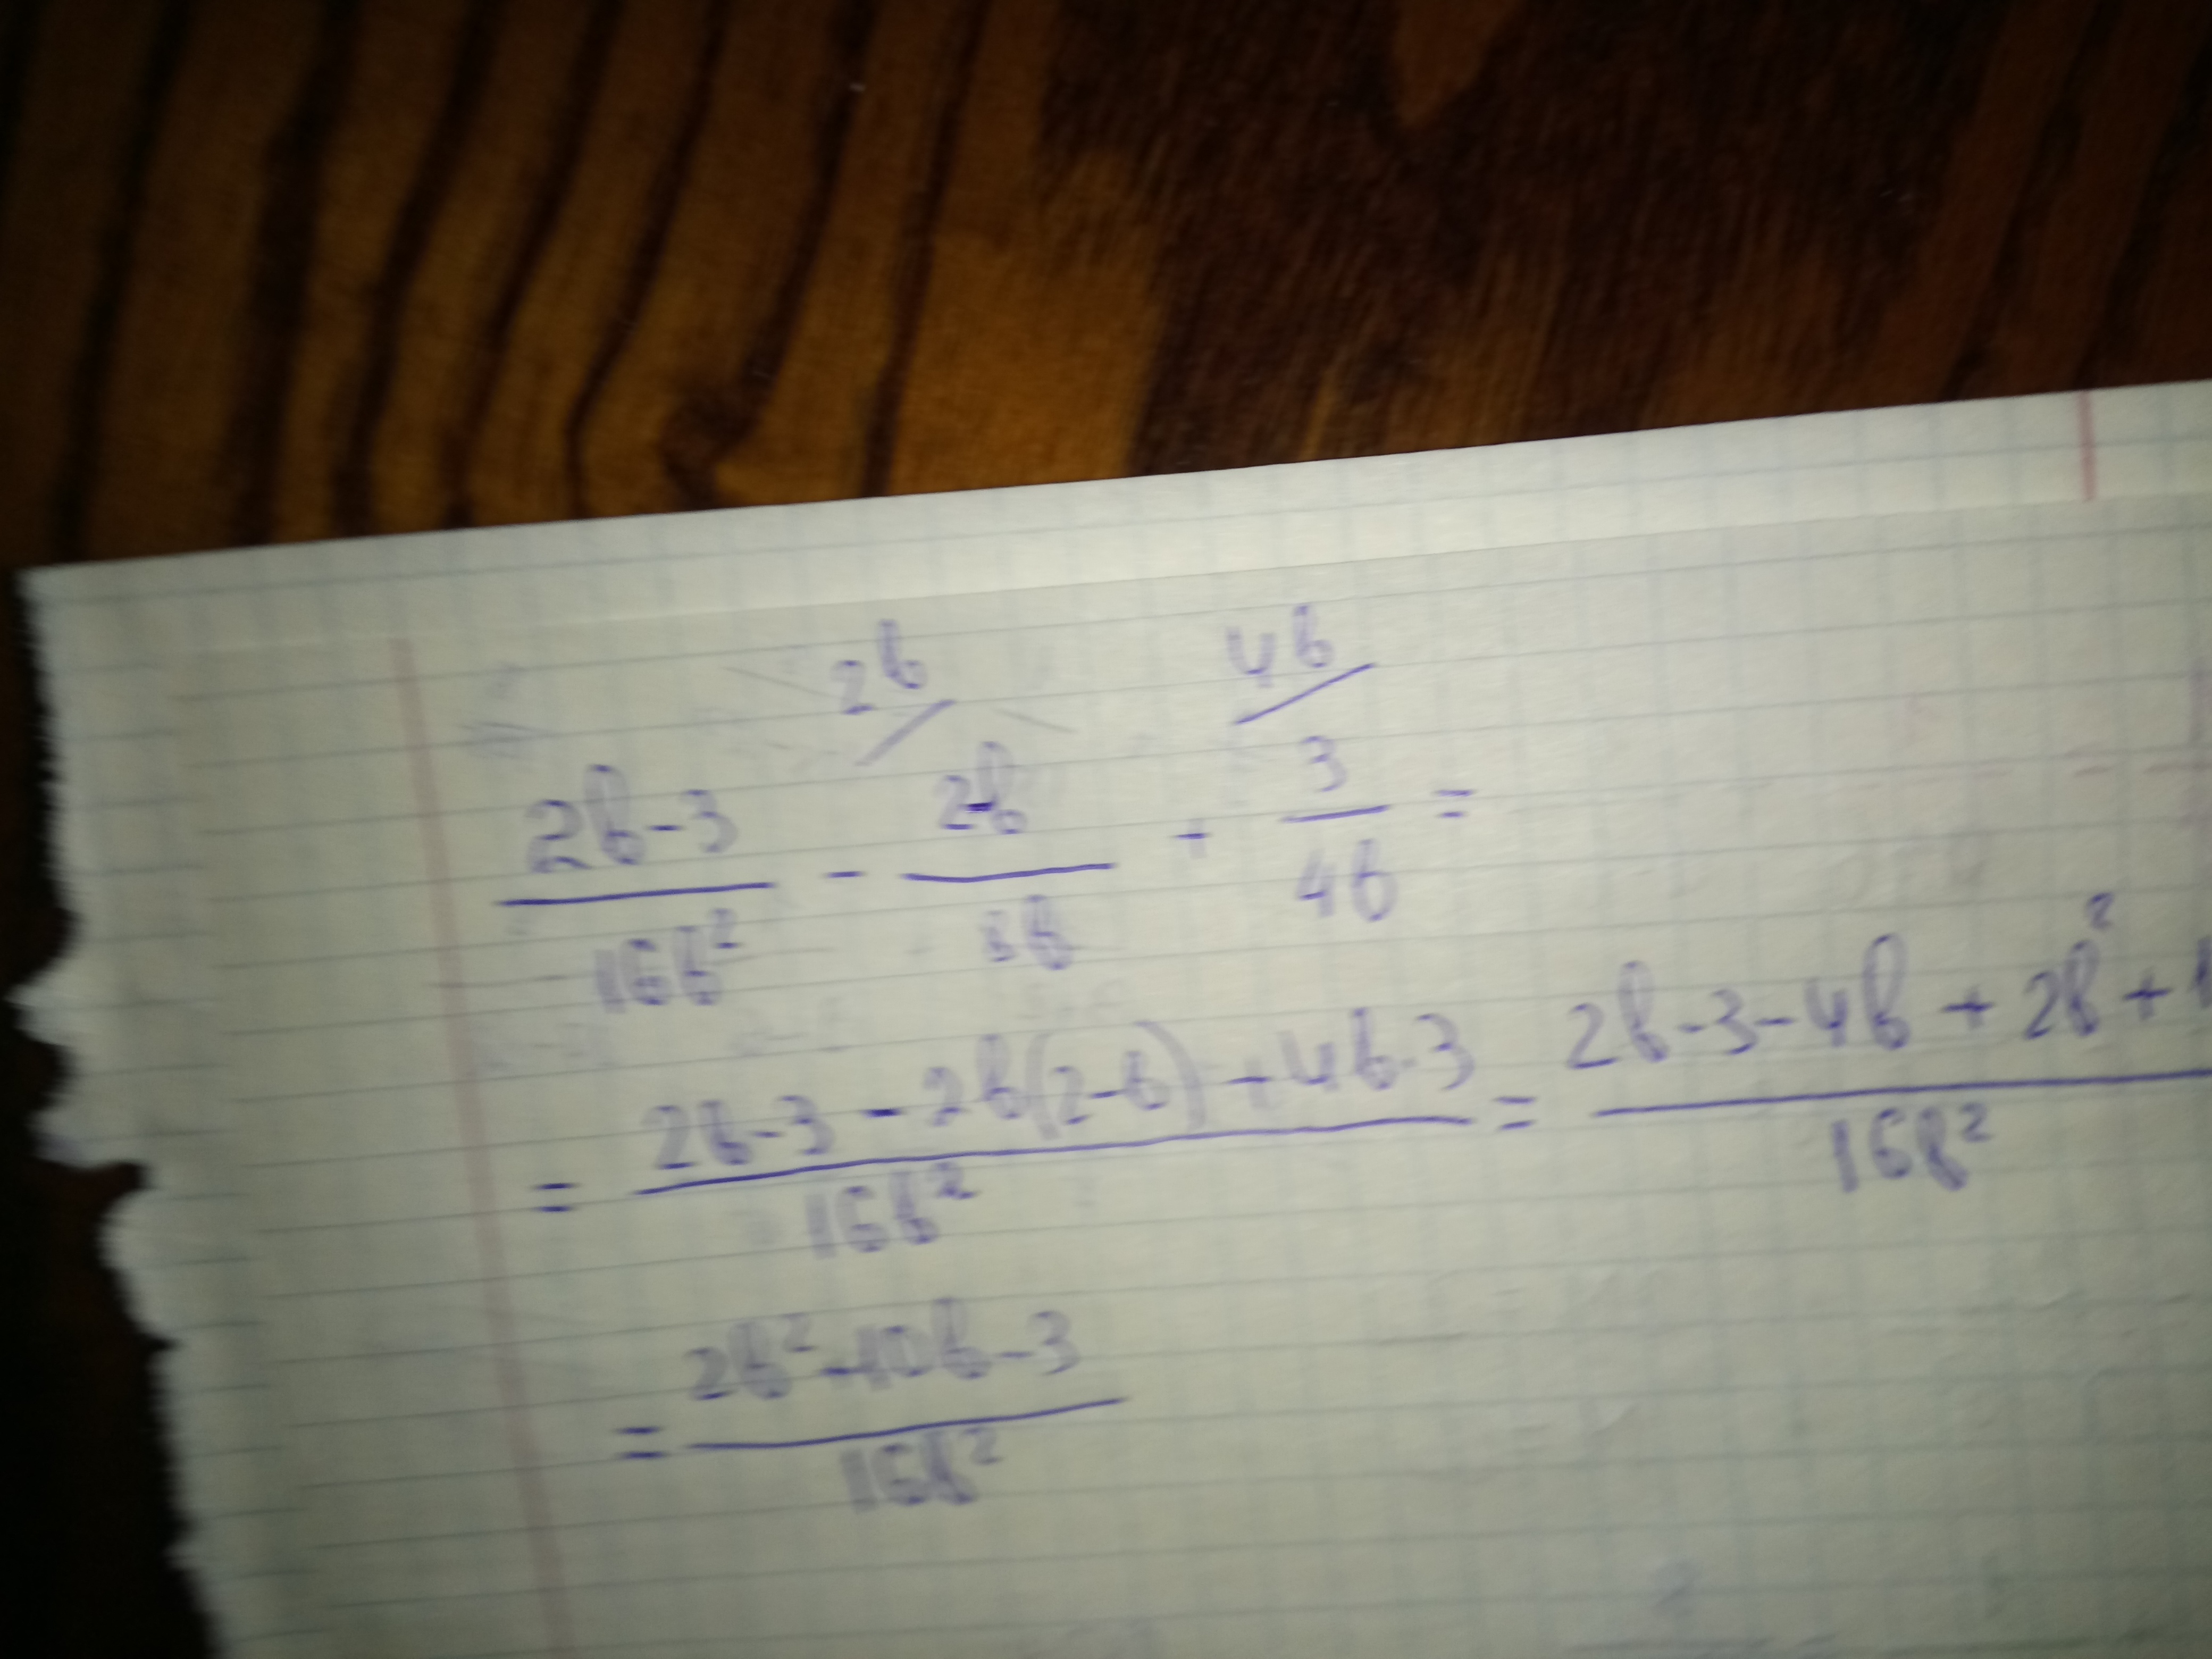 2b 4b
2b-3/16b² - 2-b/8b + 3/4b =
= 2b-3-2b(2-b)+4b·3/16b² = 2b-3-4b+2b²+1/16b²
= 2b²-10b-3/16b²